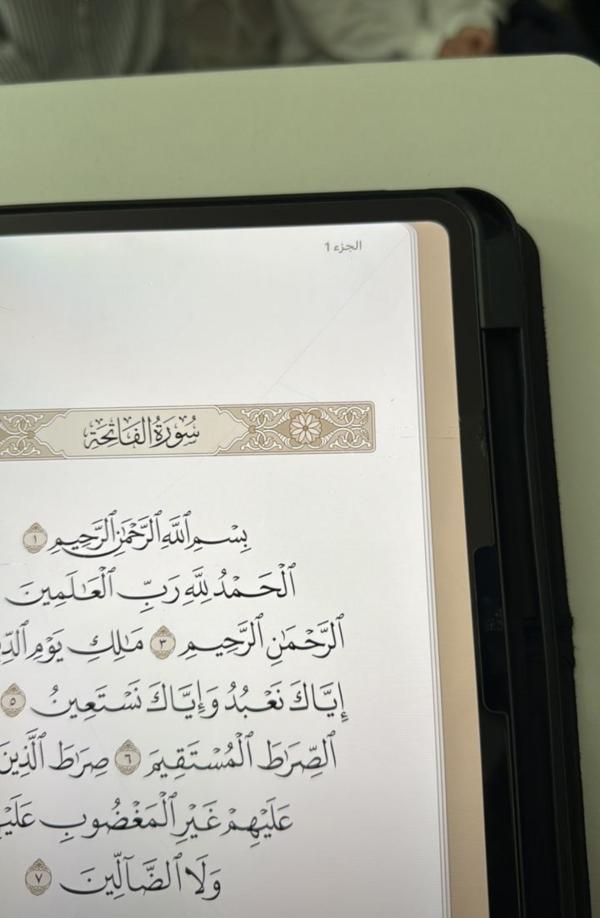 الجزء 1
سُورَةُ الفَاتِحَةِ
بِسْمِ ٱللَّهِ ٱلرَّحْمَٰنِ ٱلرَّحِيمِ ١
ٱلْحَمْدُ لِلَّهِ رَبِّ ٱلْعَٰلَمِينَ
ٱلرَّحْمَٰنِ ٱلرَّحِيمِ ٣ مَٰلِكِ يَوْمِ
إِيَّاكَ نَعْبُدُ وَإِيَّاكَ نَسْتَعِينُ ٥
ٱلصِّرَٰطَ ٱلْمُسْتَقِيمَ ٦ صِرَٰطَ ٱلَّذِينَ
عَلَيْهِمْ غَيْرِ ٱلْمَغْضُوبِ
وَلَا ٱلضَّآلِّينَ ٧